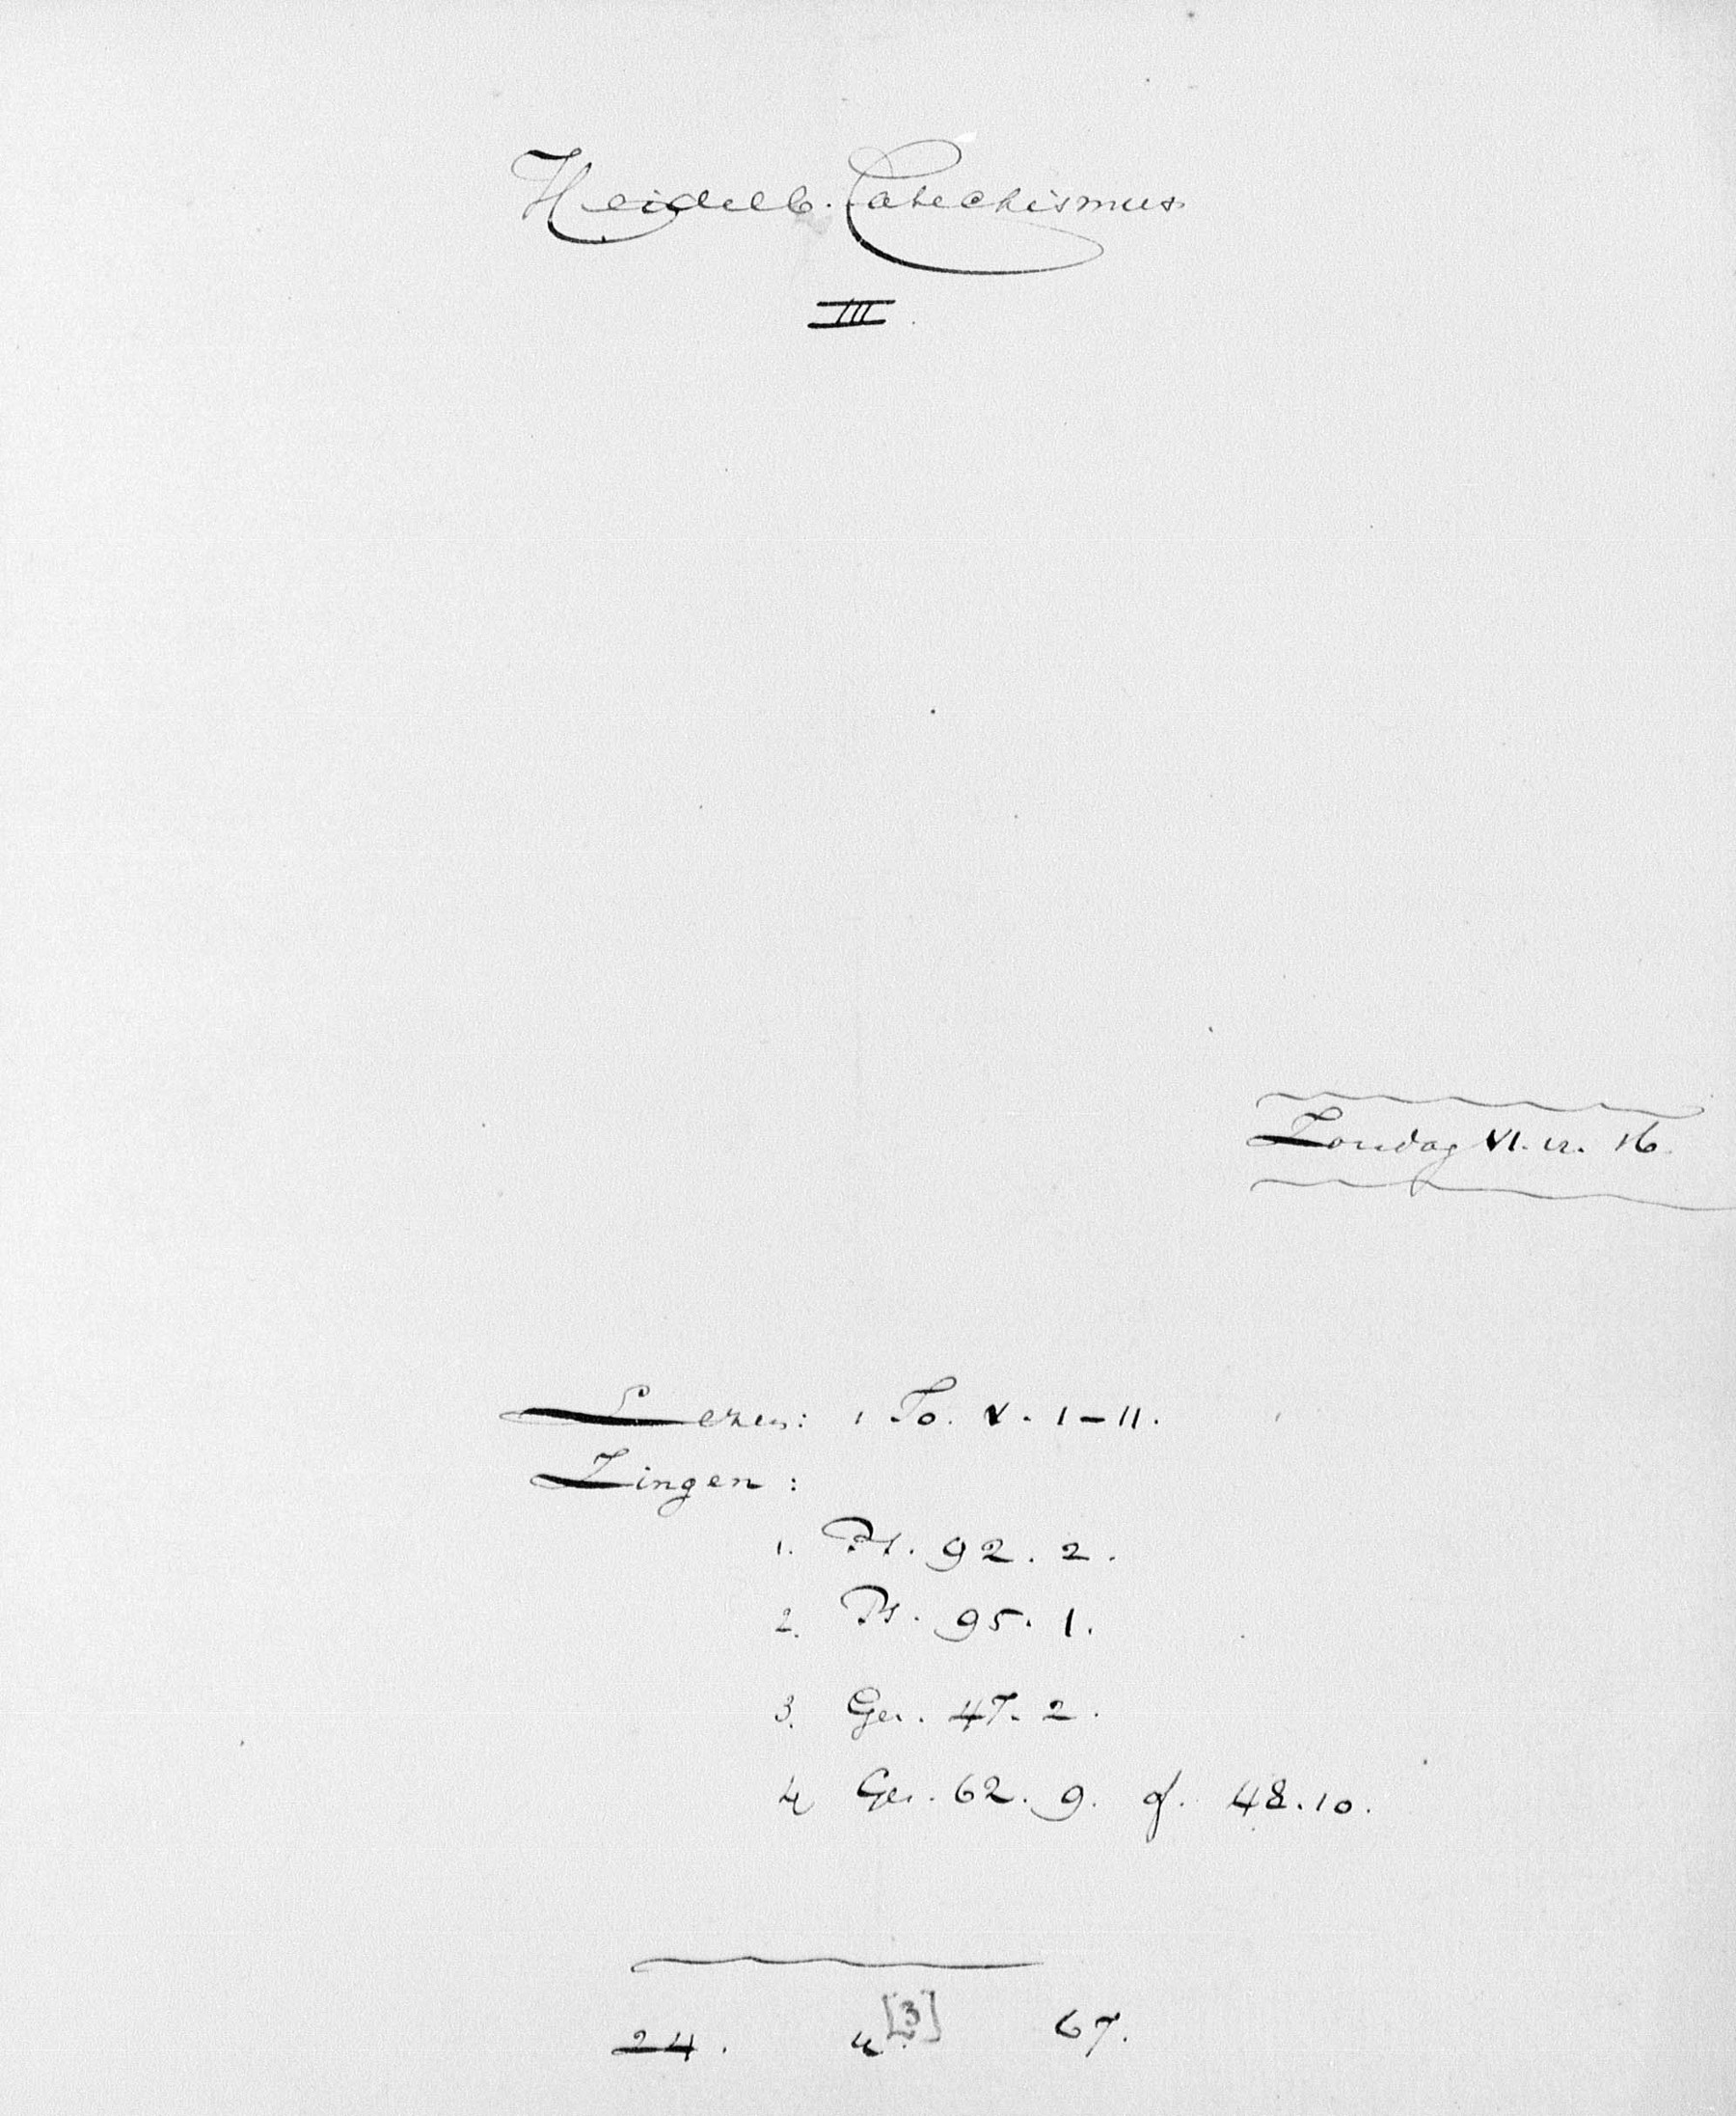 Heidelb. Catechismus
III.
Zondag VI. vr. 16.
Lezen: 1 Jo. V. 1-11.
Zingen:
1. Ps. 92. 2.
2. Ps. 95. 1.
3. Gez. 47. 2.
4 Gez. 62. 9. of. 48. 10.
24. 4 [3] 67.